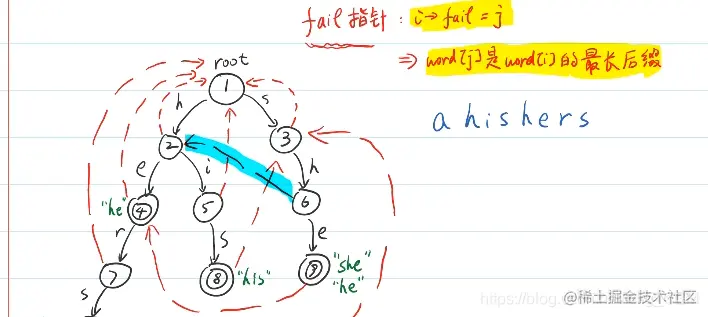 fail指针: i→fail=j
⇒ word[j]是word[i]的最长后缀
root
1
h
s
a hishers
2
3
e
i
h
"he"
4
5
6
r
s
e
7
8
"his"
9
"she"
"he"
s
https://blog.
@稀土掘金技术社区